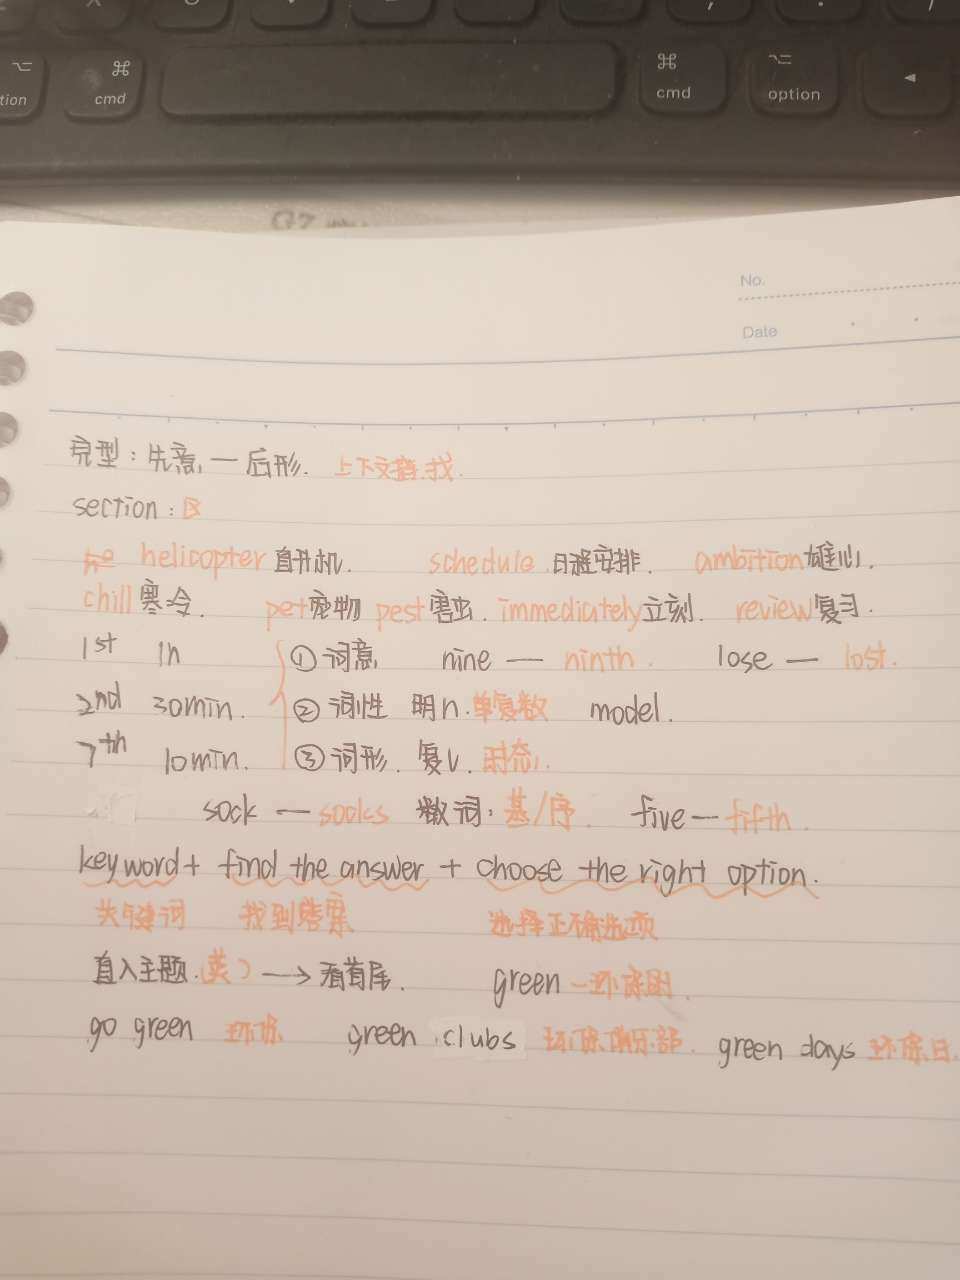 ⌥ ⌘ ⌘ ⌥ ◄
tion cmd cmd option
No.
Date
完型：先意一后形. 上下文猜.找.
section：区
helicopter 直升机. schedule 日程安排. ambition 雄心.
chill 寒冷. pet 宠物 pest 害虫. immediately 立刻. review 复习.
1st 1n ① 词意 nine — ninth. lose — lost.
2nd 30min. ② 词性 明n.单复数 model.
7th 10min. ③ 词形. 复v. 时态.
sock — socks 数词：基/序. five — fifth.
key word + find the answer + choose the right option.
关键词 找到答案 选择正确选项
直入主题.(英) → 看首尾. green — 环保的.
go green 环保 green clubs 环保俱乐部. green days 环保日.